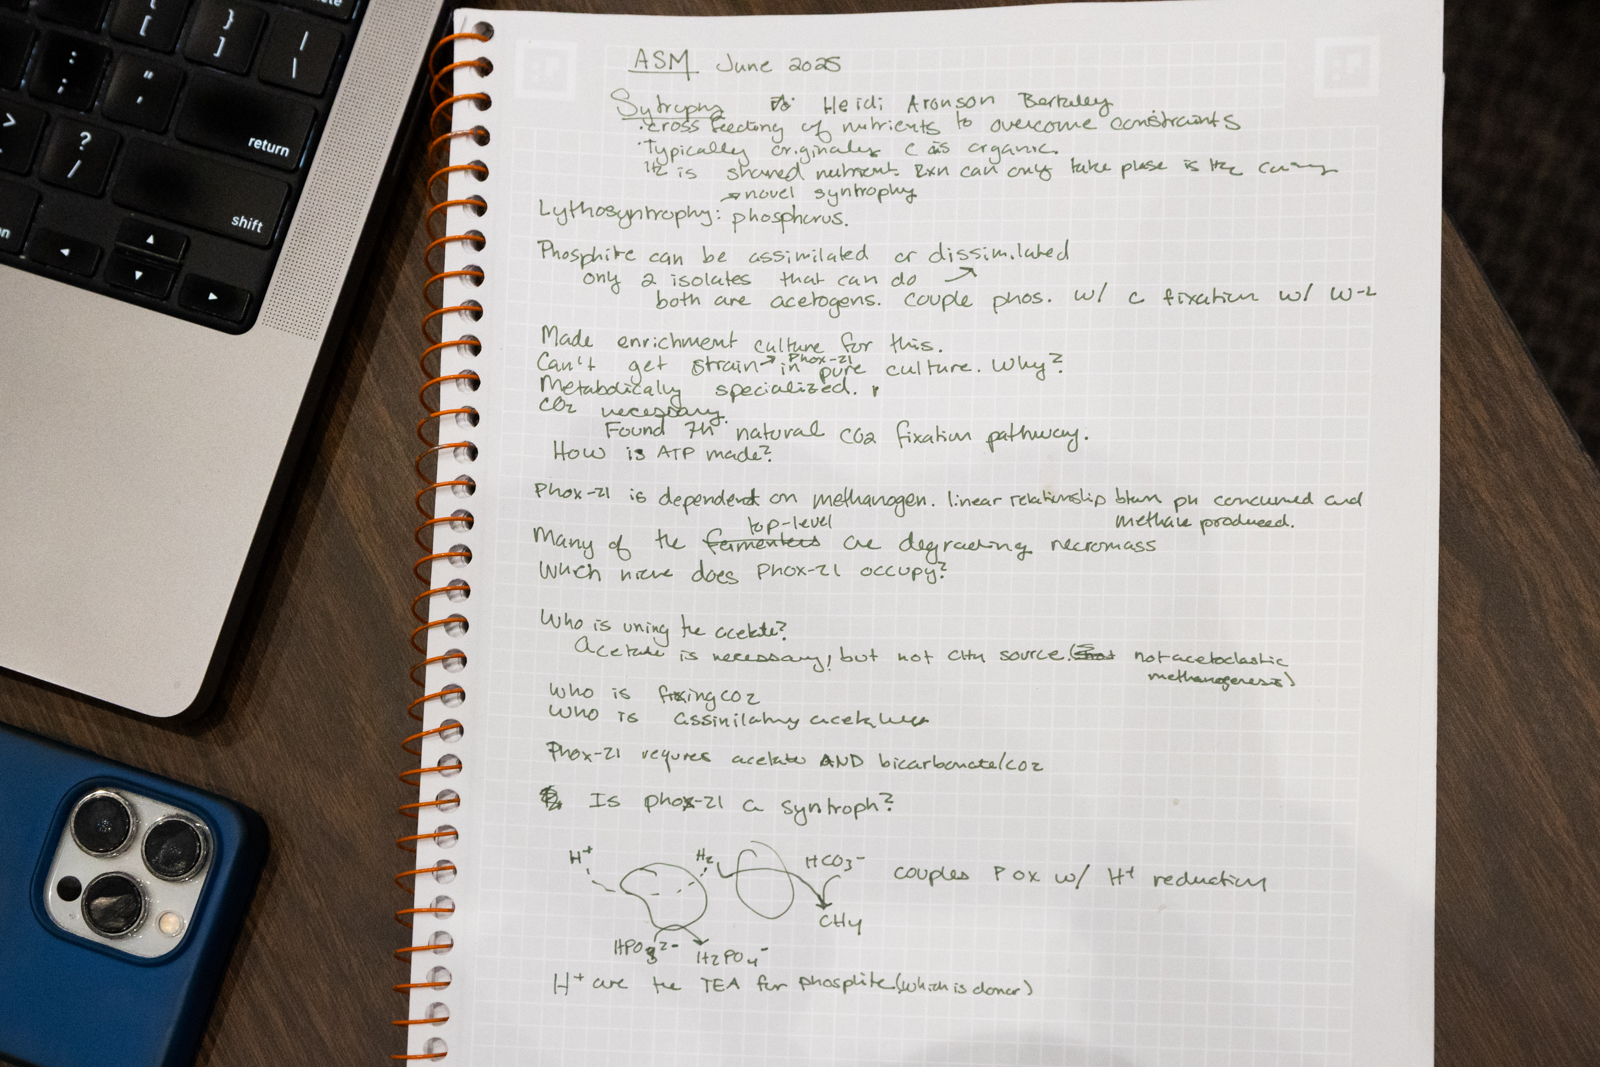 {
[
}
]
|
\
:
;
"
'
return
>
?
/
shift
ASM June 2025
Sytrophy Heidi Aronson Berkeley
· cross feeding of nutrients to overcome constraints
· Typically originales C is organic.
H2 is shared nutrient. Rxn can only take place is H2
→ novel syntrophy
Lythosyntrophy: phosphorus.
Phosphite can be assimilated or dissimilated
only 2 isolates that can do ↗
both are acetogens. couple phos. w/ C fixation w/ W-L
Made enrichment culture for this.
Can't get strain → Phox-21 in pure culture. Why?
Metabolically specialized.
CO2 necessary.
Found 7th natural CO2 fixation pathway.
How is ATP made?
Phox-21 is dependent on methanogen. linear relationship btwn pH concumed and
methane produced.
top-level
Many of the fermenters are degrading necromass
Which niche does Phox-21 occupy?
Who is using the acetate?
Acetate is necessary, but not CH4 source. ( not acetoclastic
methanogenesis)
Who is fixing CO2
Who is assimilating
Phox-21 requres acetate AND bicarbonate/CO2
Is phox-21 a syntroph?
H+ H2 HCO3- couples P ox w/ H+ reduction
CH4
HPO3 2- H2PO4-
H+ are the TEA for phosphite (which is donor)